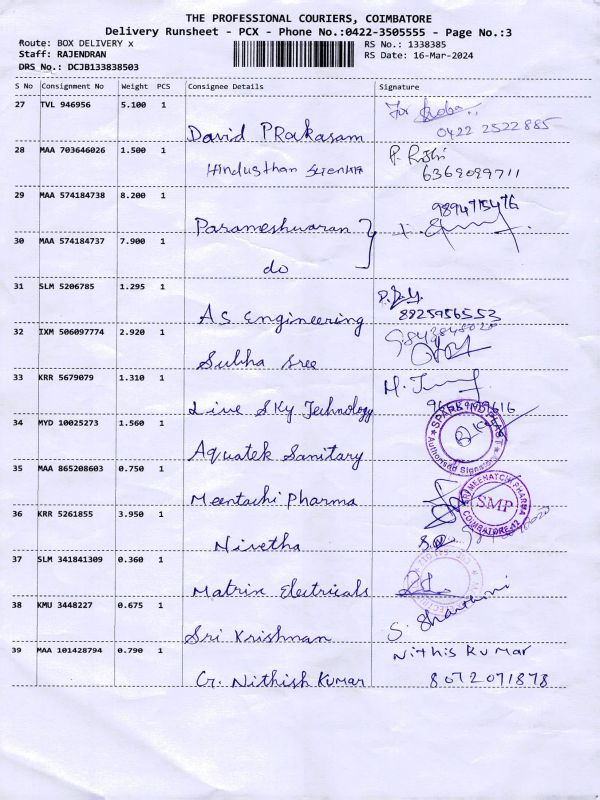 THE PROFESSIONAL COURIERS, COIMBATORE
Delivery Runsheet - PCX - Phone No.:0422-3505555 - Page No.:3
Route: BOX DELIVERY x
RS No.: 1338385
Staff: RAJENDRAN
RS Date: 16-Mar-2024
DRS No.: DCJB133838503
S No Consignment No Weight PCS Consignee Details Signature
27 TVL 946956 5.100 1
For
David PRakasam 0422 2522885
28 MAA 703646026 1.500 1
Hindusthan 6369099711
29 MAA 574184738 8.200 1
9894715476
Parameshwaran
30 MAA 574184737 7.900 1
do
31 SLM 5206785 1.295 1
8925956553
AS Engineering
32 IXM 506097774 2.920 1
Subha Sree
33 KRR 5679079 1.310 1
Live Sky Technology
34 MYD 10025273 1.560 1
Authorised
Aquatek Sanitary
35 MAA 865208603 0.750 1
Meentachi Pharma
SRI MEENATCHI PHARMA
SMP
COIMBATORE-12
36 KRR 5261855 3.950 1
Nivetha
37 SLM 341841309 0.360 1
Matrix Electricals
38 KMU 3448227 0.675 1
Sri Krishnan
39 MAA 101428794 0.790 1
Nithis Kumar
G. Nithish Kumar 8072071878